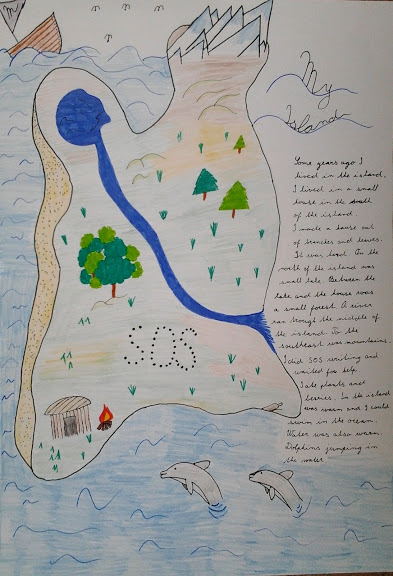 My
Island
Some years ago I
lived in the island.
I lived in a small
house in the south
of the island.
I made a house out
of branches and leaves.
It was hard. In the
north of the island was
small lake. Between the
lake and the house was
a small forest. A river
ran trough the middle of
the island. In the
southeast was mountains.
I did SOS writing and
waited for help.
I ate plants and
berries. In the island
was warm and I could
swim in the ocean.
Water was also warm.
Dolphins jumping in
the water.
SOS